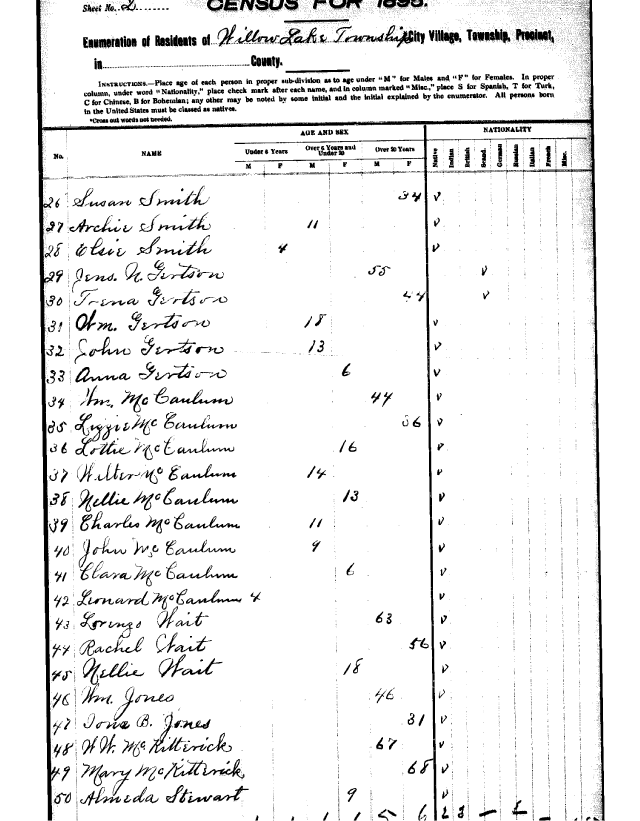 Sheet No. 2
CENSUS FOR 1895.
Enumeration of Residents of Willow Lake Township City Village, Township, Precinct,
in County.
INSTRUCTIONS.—Place age of each person in proper sub-division as to age under "M" for Males and "F" for Females. In proper
column, under word "Nationality," place check mark after each name, and in column marked "Misc.," place S for Spanish, T for Turk,
C for Chinese, B for Bohemian; any other may be noted by some initial and the initial explained by the enumerator. All persons born
in the United States must be classed as natives.
*Cross out words not needed.
AGE AND SEX NATIONALITY
No. NAME Under 6 Years Over 6 Years and Under 20 Over 20 Years Native Indian British Scand. German Russian Italian French Misc.
M F M F M F
26 Susan Smith 34 v
27 Archie Smith 11 v
28 Elsie Smith 4 v
29 Jens. N. Gertson 55 v
30 Trena Gertson 44 v
31 Wm. Gertson 18 v
32 John Gertson 13 v
33 Anna Gertson 6 v
34 Wm. McCaulum 44 v
35 Lizzie McCaulum 36 v
36 Lottie McCaulum 16 v
37 Walter McCaulum 14 v
38 Nellie McCaulum 13 v
39 Charles McCaulum 11 v
40 John McCaulum 9 v
41 Clara McCaulum 6 v
42 Leonard McCaulum 4 v
43 Lorenzo Wait 63 v
44 Rachel Wait 56 v
45 Nellie Wait 18 v
46 Wm. Jones 46 v
47 Iona B. Jones 31 v
48 W.W. McKitterick 67 v
49 Mary McKitterick 68 v
50 Almeda Stewart 9 v